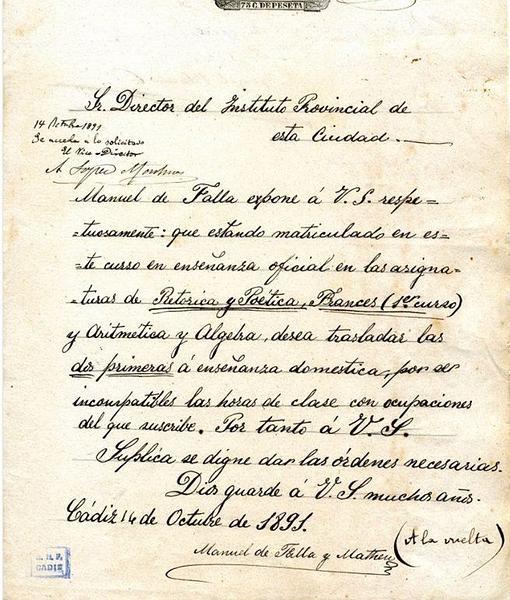 75 C. DE PESETA
Sr. Director del Instituto Provincial de
esta Ciudad.
14 Octubre 1891
Se accede a lo solicitado
El Vice-Director
Manuel de Falla expone á V. S. respe=
=tuosamente: que estando matriculado en es-
=te curso en enseñanza oficial en las asigna=
=turas de Retorica y Poética, Frances (1er curso)
y Aritmetica y Algebra, desea trasladar las
dos primeras á enseñanza domestica, por ser
incompatibles las horas de clase con ocupaciones
del que suscribe. Por tanto á V. S.
Suplica se digne dar las órdenes necesarias.
Dios guarde á V. S. muchos años.
Cádiz 14 de Octubre de 1891.
(A la vuelta)
Manuel de Falla y Matheu
CADIZ